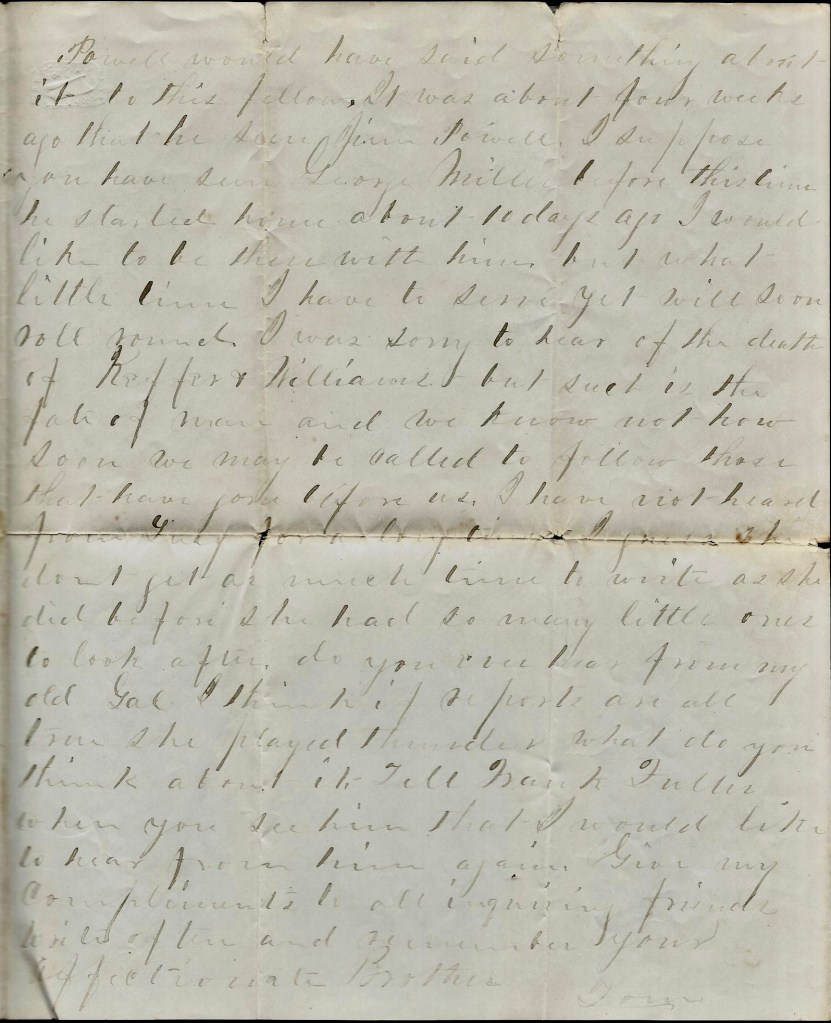 Powell would have said something about
it to this fellow. It was about four weeks
ago that he seen Jim Powell. I suppose
you have seen George Miller before this time
he started home about 10 days ago I would
like to be there with him. but what
little time I have to serve yet will soon
roll round. I was sorry to hear of the death
of Keffer & Williams but such is the
fate of man and we know not how
soon we may be called to follow those
that have gone before us. I have not heard
from for a long time I guess she
dont get as much time to write as she
did before she had so many little ones
to look after. do you ever hear from my
old Gal I think if reports are all
true she played thunder what do you
think about it. Tell Frank Fuller
when you see him that I would like
to hear from him again. Give my
Compliments to all inquiring friends
Write often and remember your
affectionate Brother
Tom